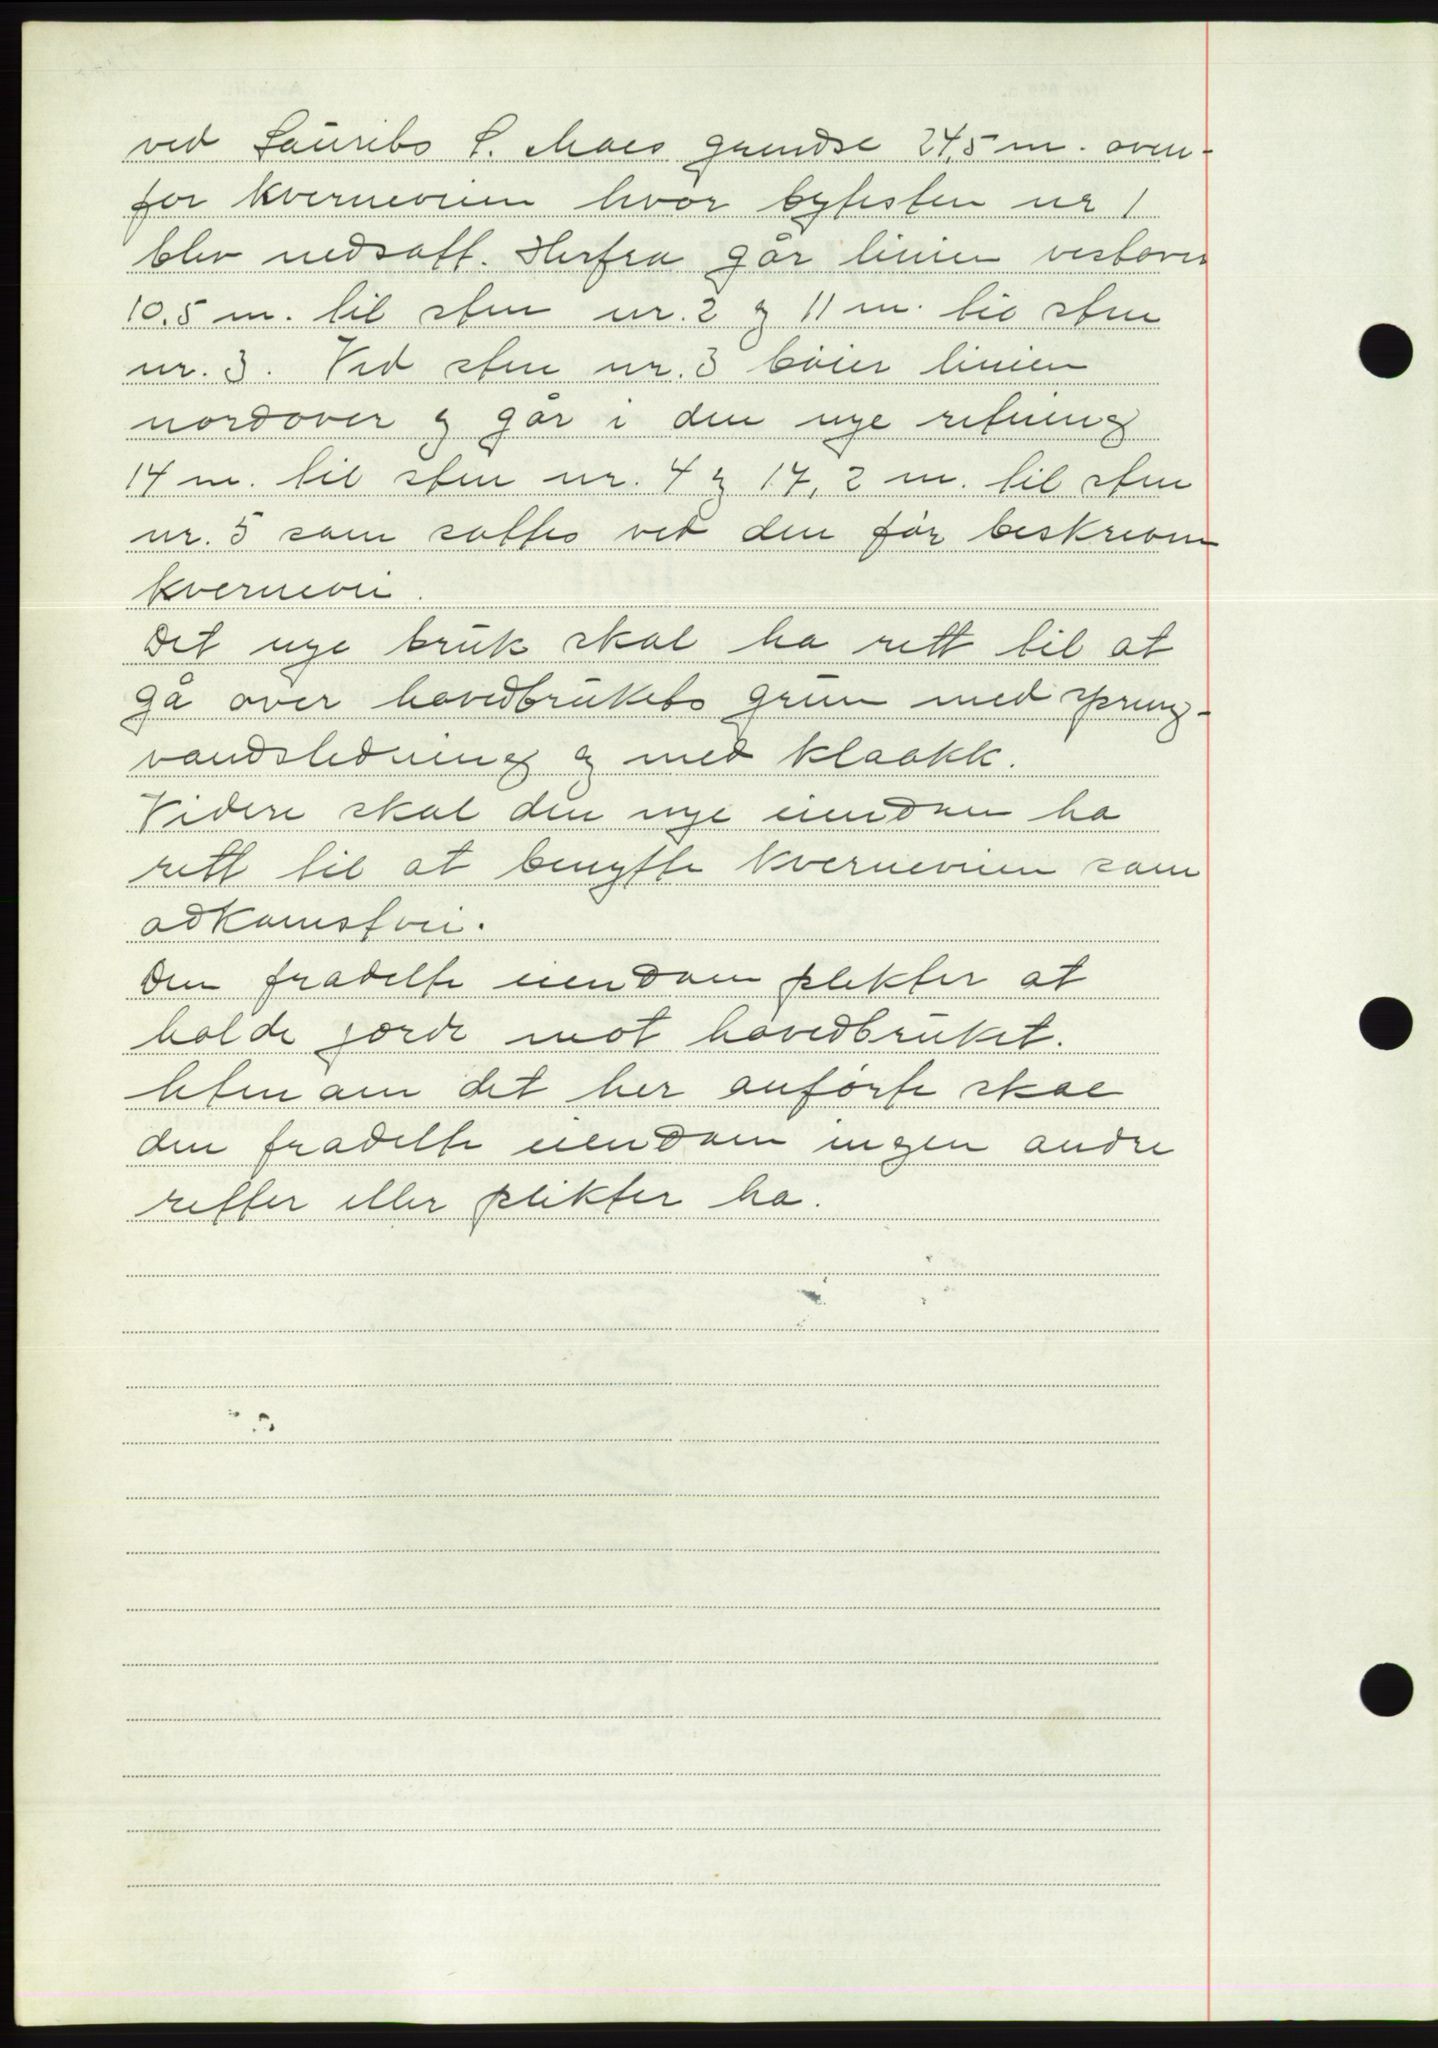 ved Laurits L. Moes grendse 24,5 m. oven-
for kverneveien hvor bytesten nr 1
blev nedsatt. Herfra går linien vestover
10,5 m. til sten nr. 2 og 11 m. til sten
nr. 3. Ved sten nr. 3 bøier linien
nordover og går i den nye retning
14 m. til sten nr. 4 og 17,2 m. til sten
nr. 5 som sattes ved den før beskrevne
kvernevei.
Det nye bruk skal ha rett til at
gå over hovedbrukets grunn med spring-
vandsledning og med kloakk.
Videre skal den nye eiendom ha
rett til at benytte kverneveien som
adkomstvei.
Den fradelte eiendom plikter at
holde gjerde mot hovedbruket.
Uten om det her anførte skal
den fradelte eiendom ingen andre
retter eller plikter ha.